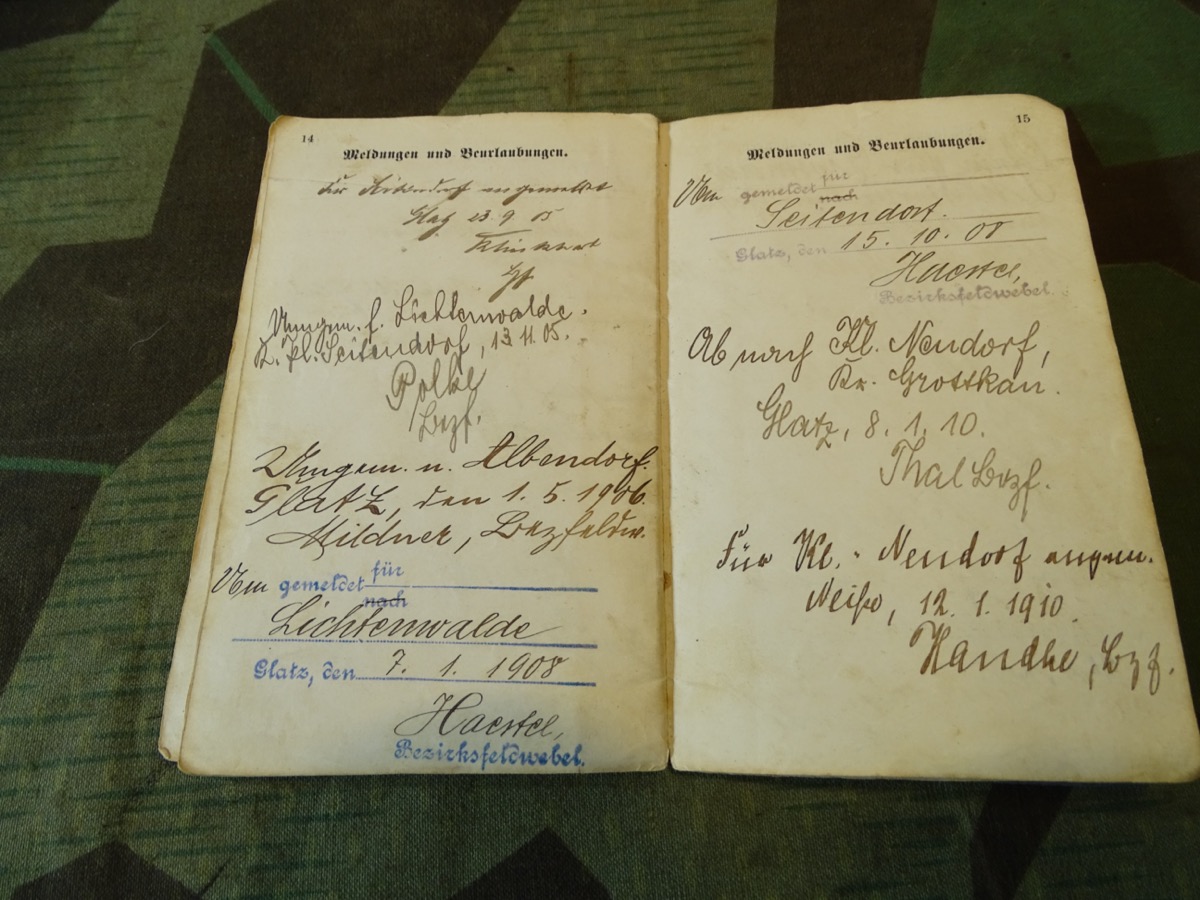 14
Meldungen und Beurlaubungen.
Für angemeldet
Glaz 23 9 05
Umgem. f. Lichtenwalde.
Z. Kl. Seitendorf, 13.11.05.
Polke
Bezf.
Umgem. n. Albendorf.
Glatz, den 1. 5. 1906.
Mildner, Bezfeldw.
Um gemeldet für
nach
Lichtenwalde
Glatz, den 7. 1. 1908
Haertel,
Bezirksfeldwebel.
15
Meldungen und Beurlaubungen.
Um gemeldet für
nach
Seitendorf.
Glatz, den 15. 10. 08
Haertel,
Bezirksfeldwebel.
Ab nach Kl. Neudorf,
Kr. Grottkau.
Glatz, 8. 1. 10.
Thal Bezf.
Für Kl. - Neudorf angem.
Neiße, 12. 1. 1910.
Handke, Bzf.